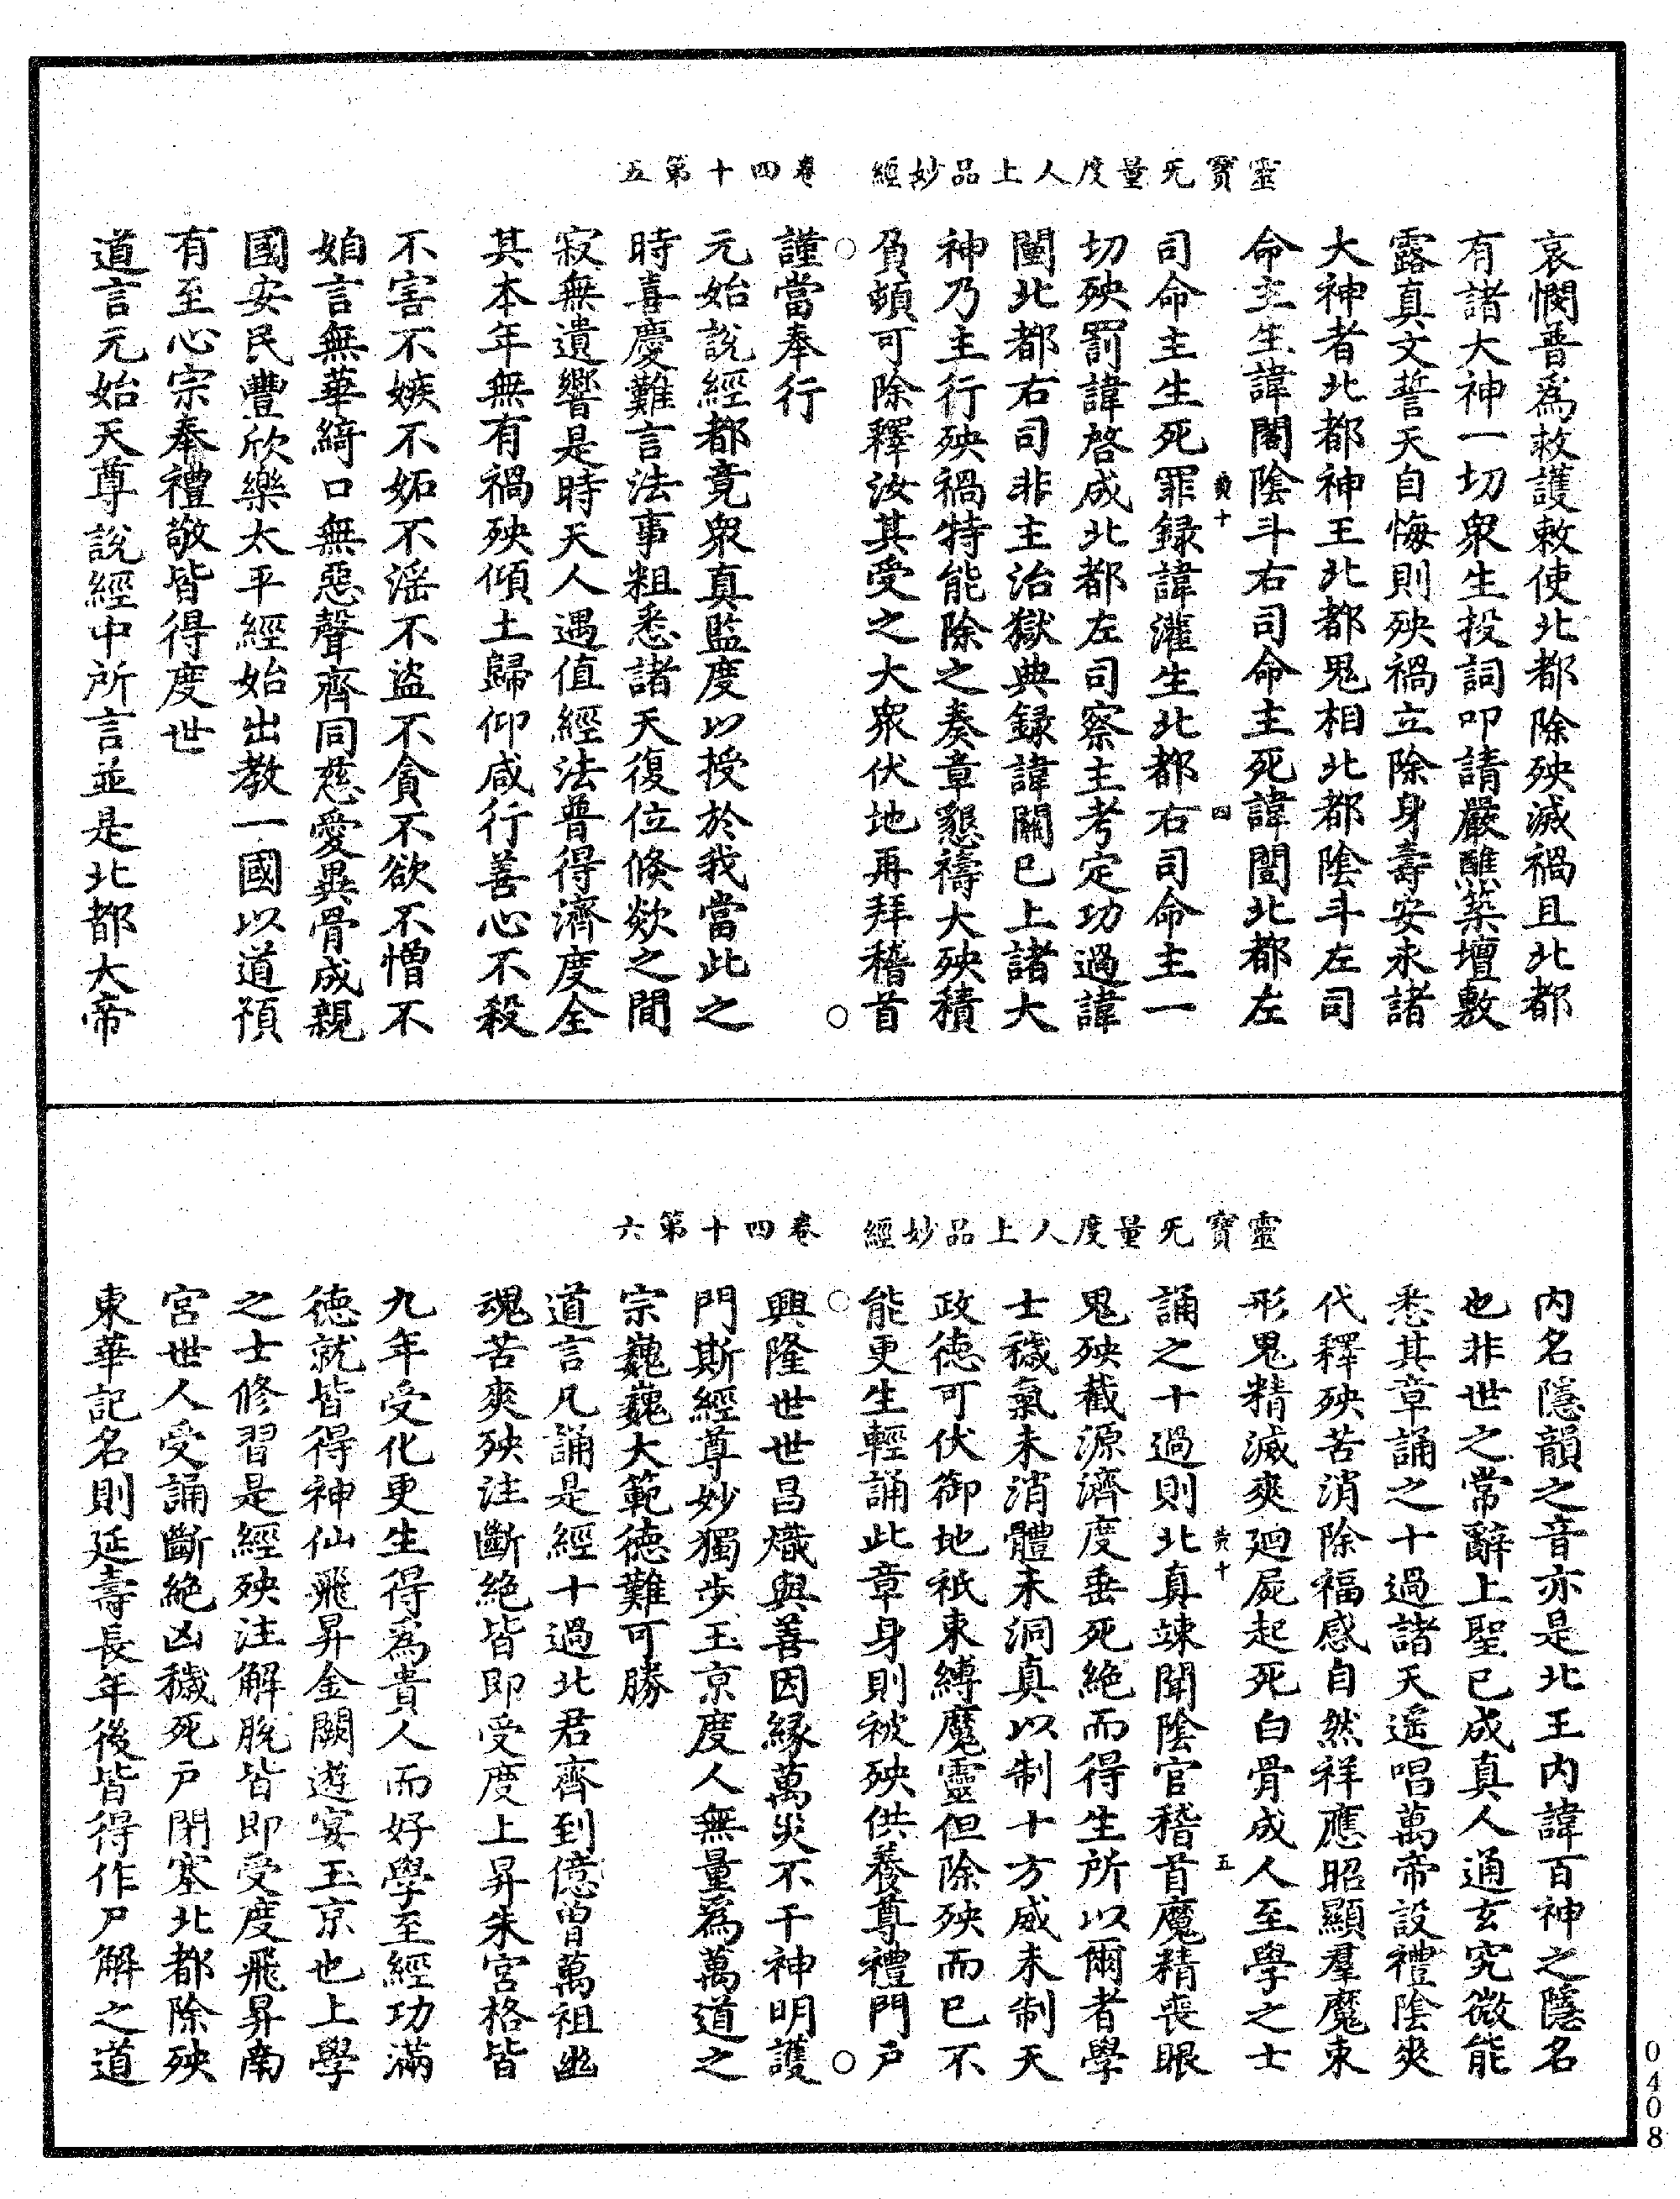 靈寶旡量度人上品妙經　卷四十第五
哀憫普為救護敕使北都除殃滅禍且北都
有諸大神一切衆生投詞叩請嚴醮築壇敷
露真文誓天自悔則殃禍立除身壽安永諸
大神者北都神王北都鬼相北都陰斗左司
命主生諱闍陰斗右司命主死諱闉北都左
黃十　四
司命主生死罪録諱灌生北都右司命主一
切殃罰諱啓成北都左司察主考定功過諱
闉北都右司非主治獄典録諱闢已上諸大
神乃主行殃禍特能除之奏章懇禱大殃積
負頓可除釋汝其受之大衆伏地再拜稽首
謹當奉行
元始說經都竟衆真監度以授於我當此之
時喜慶難言法事粗悉諸天復位倏欻之間
寂無遺響是時天人遇值經法普得濟度全
其本年無有禍殃傾土歸仰咸行善心不殺
不害不嫉不妬不滛不盜不貪不欲不憎不
妬言無華綺口無惡聲齊同慈愛異骨成親
國安民豐欣樂太平經始出教一國以道預
有至心宗奉禮敬皆得度世
道言元始天尊說經中所言並是北都大帝
靈寶旡量度人上品妙經　卷四十第六
内名隱韻之音亦是北王内諱百神之隱名
也非世之常辭上聖已成真人通玄究微能
悉其章誦之十過諸天遥唱萬帝設禮陰爽
代釋殃苦消除福感自然祥應昭顯羣魔束
形鬼精滅爽廻屍起死白骨成人至學之士
黃十　五
誦之十過則北真竦聞陰官稽首魔精喪眼
鬼殃截源濟度垂死絕而得生所以爾者學
士穢氣未消體未洞真以制十方威未制天
政德可伏御地祇束縛魔靈但除殃而已不
能更生輕誦此章身則被殃供養尊禮門戶
興隆世世昌熾與善因緣萬災不干神明護
門斯經尊妙獨步玉京度人無量為萬道之
宗巍巍大範德難可勝
道言凡誦是經十過北君齊到億曾萬祖幽
魂苦爽殃注斷絕皆即受度上昇朱宮格皆
九年受化更生得為貴人而好學至經功滿
德就皆得神仙飛昇金闕遊宴玉京也上學
之士修習是經殃注解脫皆即受度飛昇南
宮世人受誦斷絕凶穢死戶閉塞北都除殃
東華記名則延壽長年後皆得作尸解之道
0408